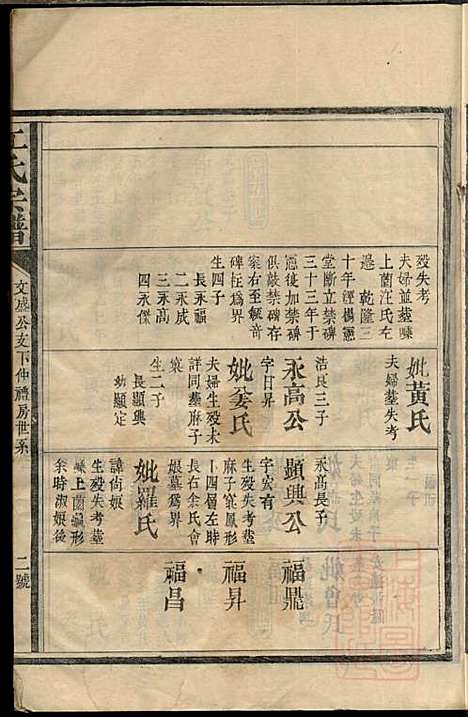 氏宗譜
文盛公支下仲禮房世系
二號
歿失考
夫婦並𦵏嗓
上菌汪氏左
邊 乾隆三
十年經楊憲
堂斷立禁碑
憲後加禁碑
三十三年于
俱敲禁碑存
家右至
碑柱為界
生四子
長永福
二永成
三永高
四永傑
妣黃氏
夫婦𦵏失考
浩良三子
永高公
字日昇
妣姜氏
夫婦生歿未
詳同𦵏麻子
窠
生二子
長顯興
幼顯定
永高長子
顯興公
字宏有
生歿失考𦵏
麻子窠鳳形
十四層左時
長右余氏會
娘墓爲界
妣羅氏
諱尚娘
生歿失考𦵏
嗓上菌 形
余時淑娘後
福鼎
福昇
福昌